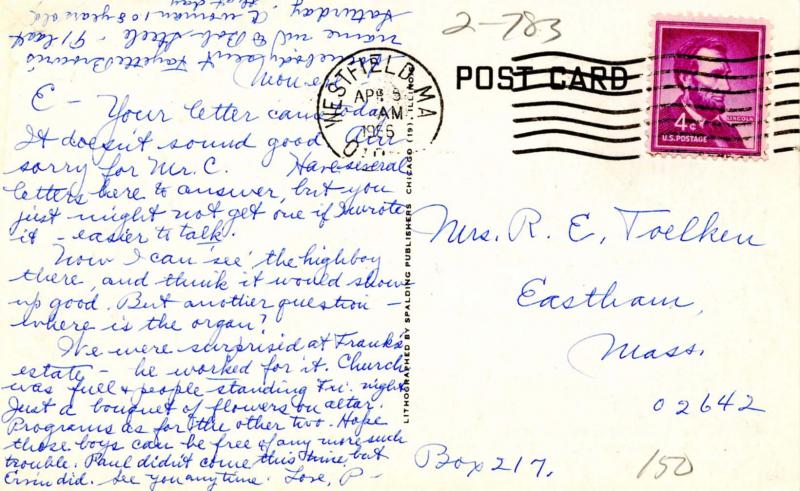 2-783
POST CARD
WESTFIELD, MA
APR 5
AM
4¢
LINCOLN
U.S. POSTAGE
Mon. eve
E - Your letter came today.
It doesn't sound good. Am
sorry for Mr. C. Have several
letters here to answer, but you
just might not get one if I wrote
it - easier to talk.
Now I can 'see' the highboy
there, and think it would show
up good. But another question -
where is the organ?
We were surprised at Frank's
estate - he worked for it. Church
was full & people standing Fri. night
Just a bouquet of flowers on altar.
Programs as for the other two. Hope
those boys can be free of any more such
trouble. Paul didn't come this time, but
did. See you anytime. Love, P-
Somebody sent Fayette Brown's
name in to Bob Steele - 91 last
Saturday. A woman 108 years old,
that day
LITHOGRAPHED BY SPALDING PUBLISHERS CHICAGO (19), ILLINOIS
Mrs. R. E. Toelken
Eastham,
Mass.
02642
Box 217.
150